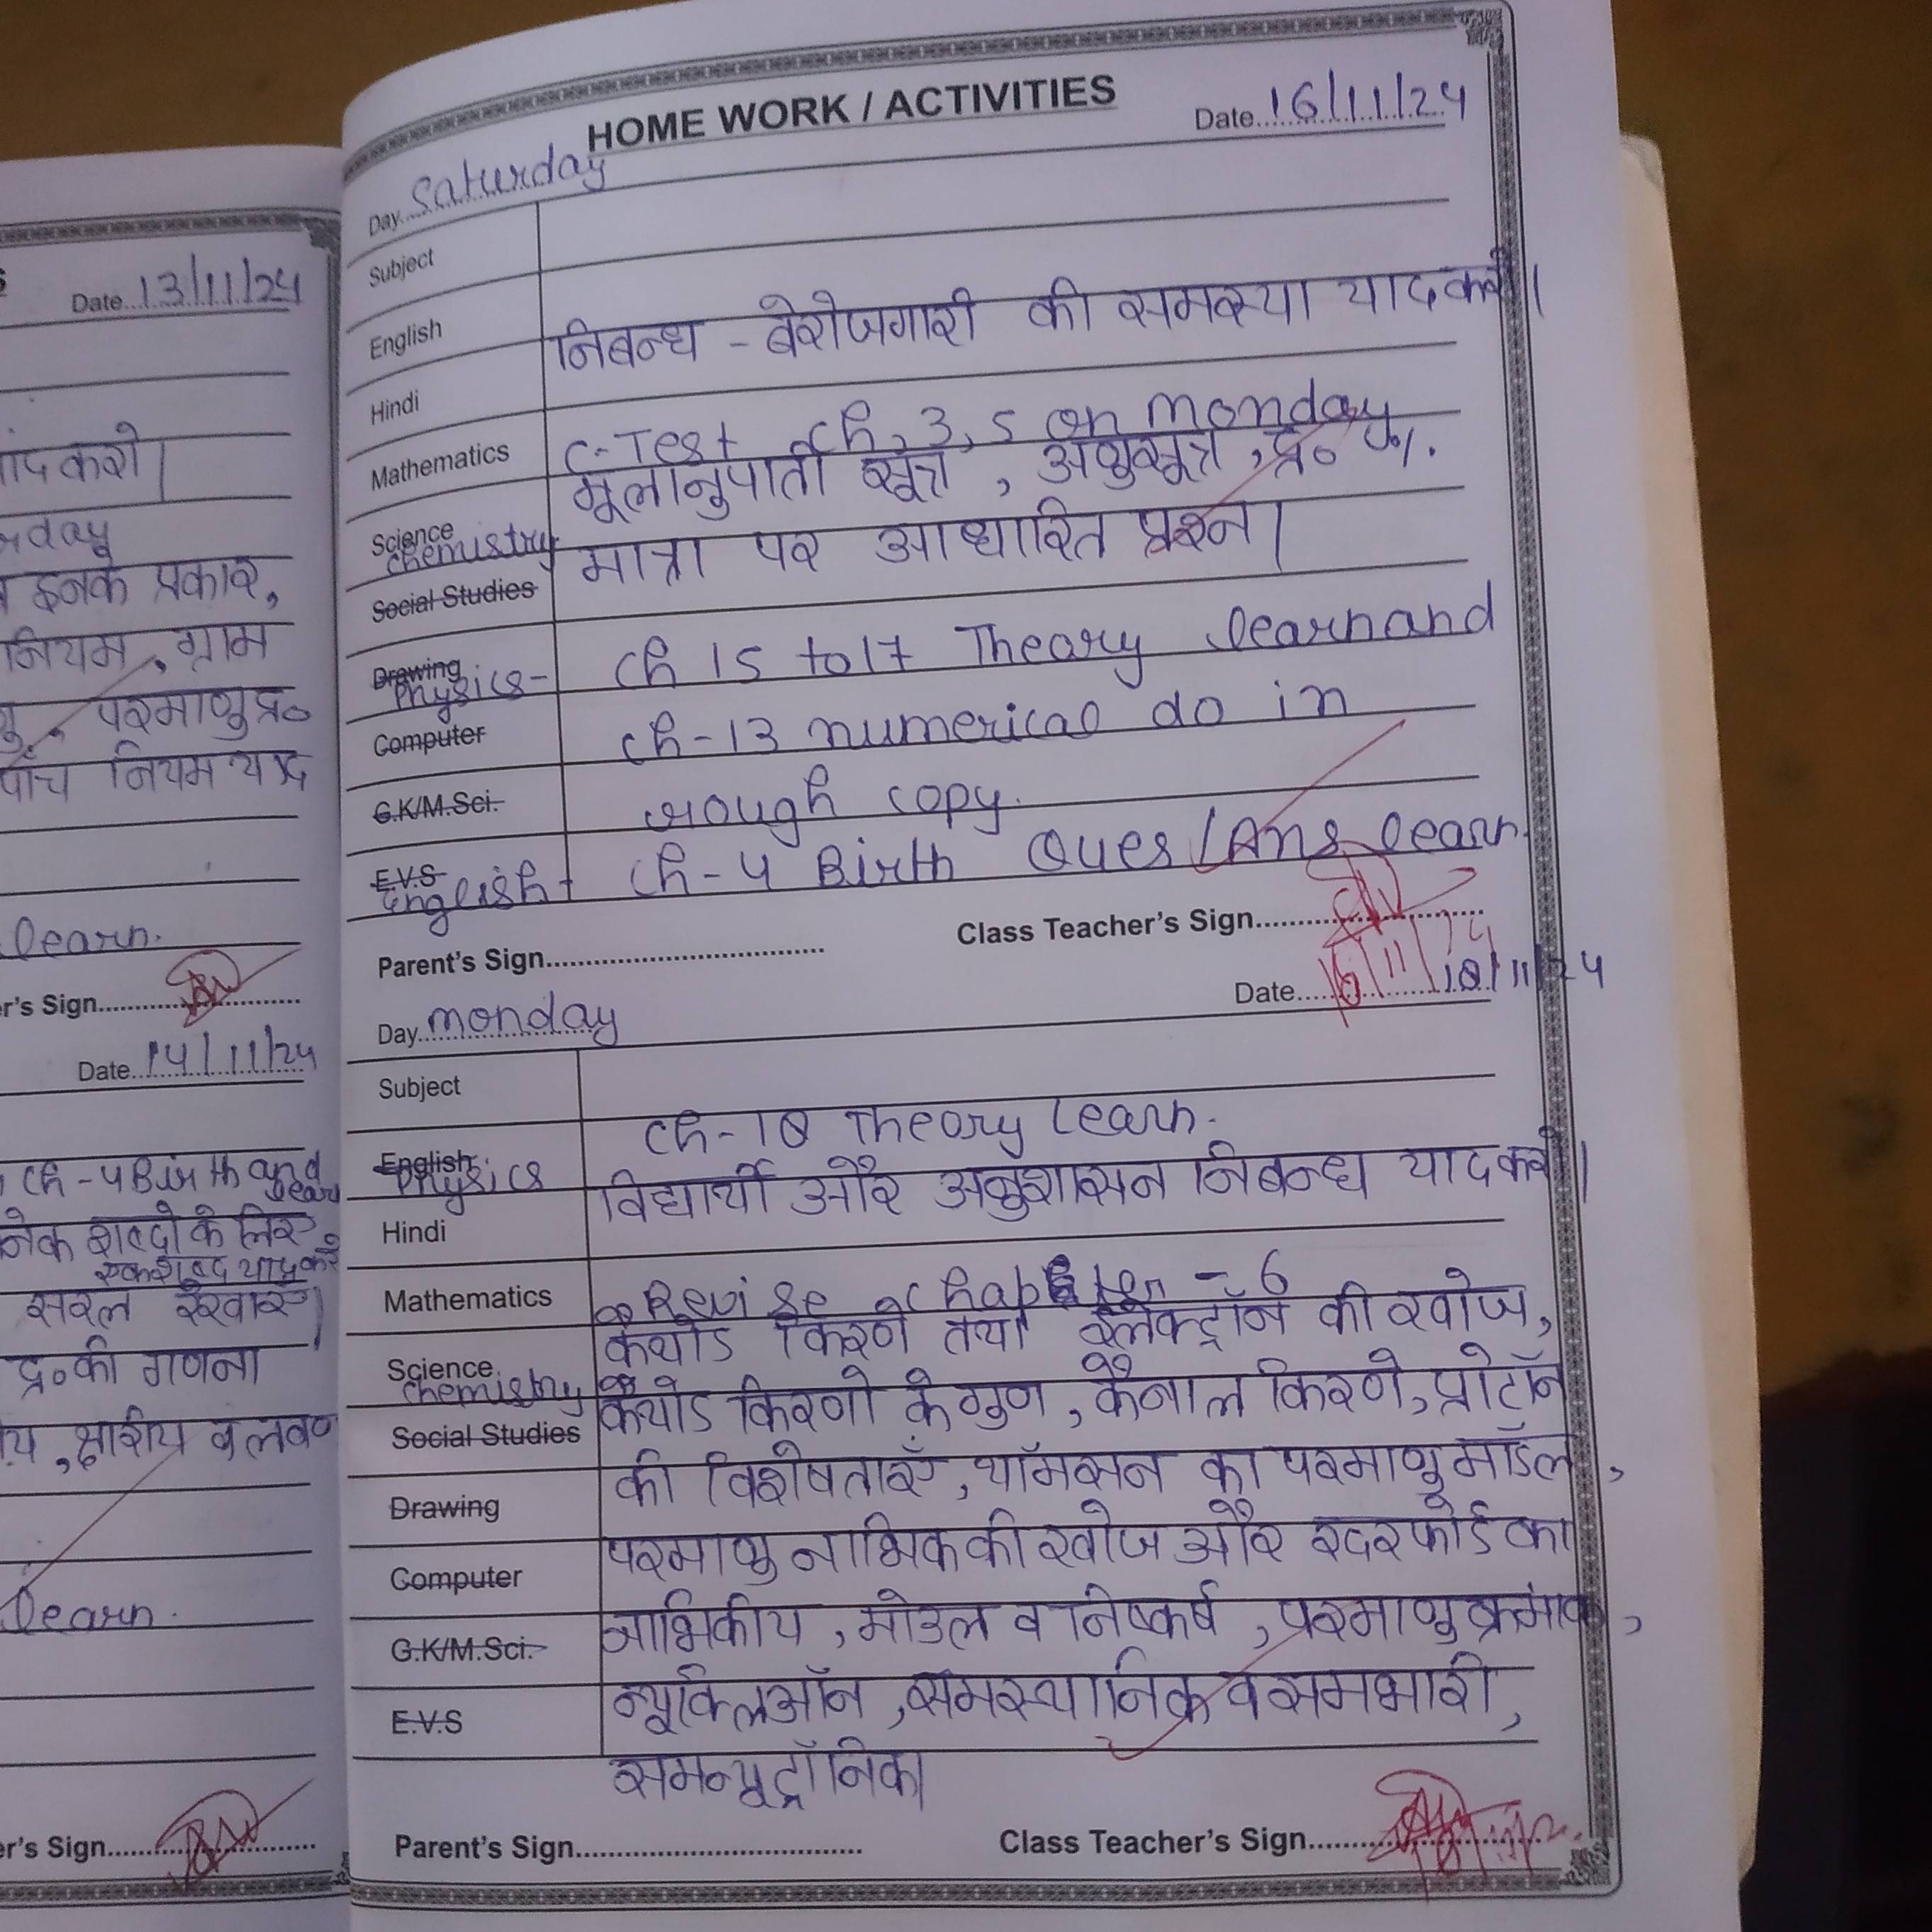 Date 13/11/24
यादकरो|
इनके प्रकार,
नियम, ग्राम
परमाणु द्र०
पाँच नियम याद
learn.
er's Sign
Date 14/11/24
ch-4 Birth and
learn
के लिए
सरल रेखाएँ|
द्र० की गणना
क्षारीय व लवण
learn.
er's Sign
HOME WORK / ACTIVITIES
Day Saturday Date 16/11/24
Subject
English
Hindi निबन्ध - बेरोजगारी की समस्या याद करो|
Mathematics C-Test ch, 3, 5 on monday
Science chemistry मूलानुपाती सूत्र, अणुसूत्र, प्र० %.
Social Studies मात्रा पर आधारित प्रश्न|
Drawing Physics- ch 15 to 17 Theory learn and
Computer ch-13 numerical do in
G.K/M.Sci. rough copy.
E.V.S English ch-4 Birth Ques/Ans learn.
Parent's Sign Class Teacher's Sign
16/11/24
Day monday Date 18/11/24
Subject
English Physics ch-18 Theory learn.
Hindi विद्यार्थी और अनुशासन निबन्ध याद करो|
Mathematics Revise chapter - 6
Science chemistry कैथोड किरणे तथा इलेक्ट्रॉन की खोज,
Social Studies कैथोड किरणो के गुण, कैनाल किरणे, प्रोटॉन
Drawing की विशेषताएँ, थॉमसन का परमाणु मॉडल,
Computer परमाणु नाभिक की खोज और रदरफोर्ड का
G.K/M.Sci. नाभिकीय, मोडल व निष्कर्ष, परमाणु क्रमांक,
E.V.S न्यूक्लिऑन, समस्थानिक व समभारी,
समन्यूट्रॉनिक|
Parent's Sign Class Teacher's Sign